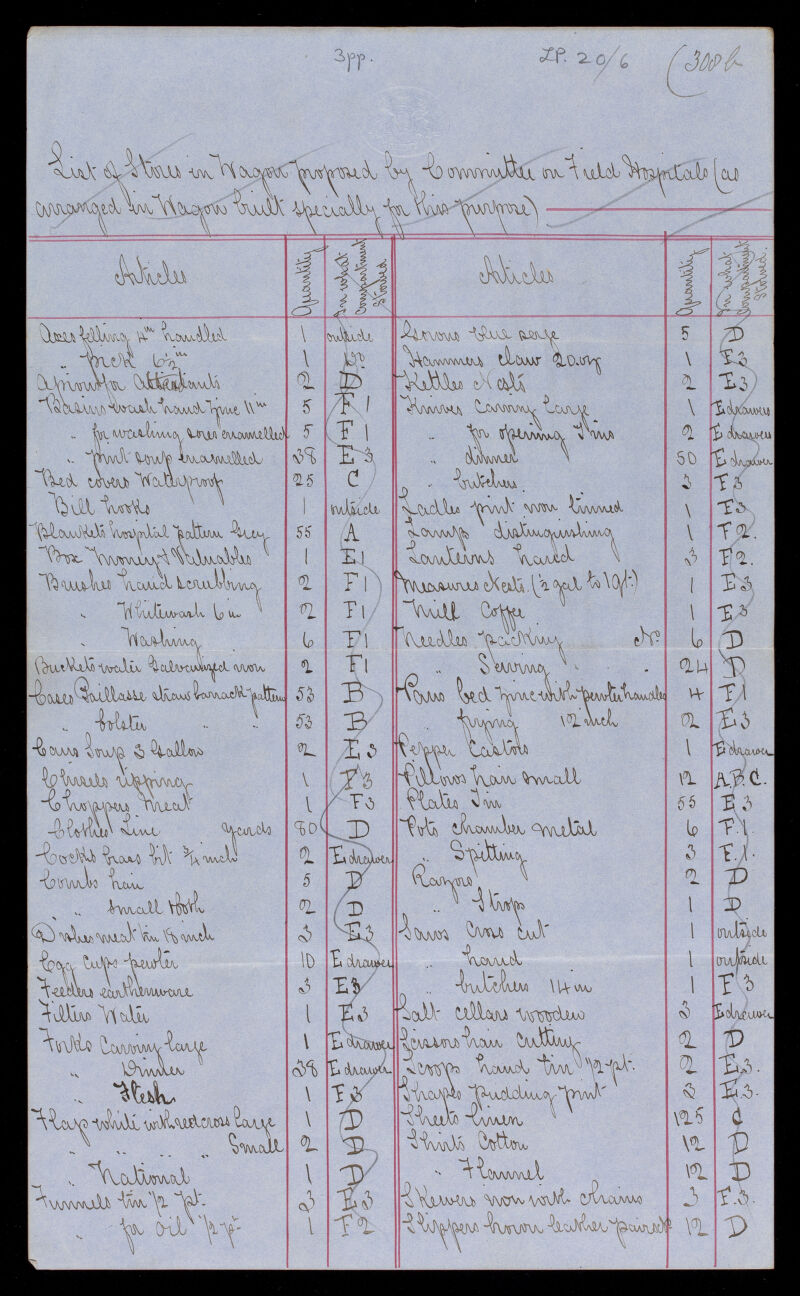 3pp.
LP. 20/6
(308 b
List of Stores in Wagon proposed by Committee on Field Hospitals (as
arranged in Wagon built specially for this purpose)
Articles Quantity In what compartment Stowed
Axes felling 4" handled 1 outside
" pick 6½" 1 do
Aprons for Attendants 2 D
Basins wash hand zinc 11 in 5 F1
" for washing sores enamelled 5 F1
" pint soup enamelled 38 E3
Bed covers Waterproof 25 C
Bill hooks 1 outside
Blankets hospital pattern Grey 55 A
Box Money & Valuables 1 E1
Brushes hand scrubbing 2 F1
" Whitewash 6 in 2 F1
" Washing 6 F1
Buckets water Galvanized iron 2 F1
Cases Paillasse straw barrack pattern 53 B
" bolster " " 53 B
Cans Soup 3 Gallon 2 E3
Chisels ripping 1 F3
Choppers Meat 1 F3
Clothes Line yards 80 D
Cocks brass bit ¾ inch 2 E drawer
Combs hair 5 D
" small tooth 2 D
Dishes meat tin 18 inch 3 E3
Egg Cups pewter 10 E drawer
Feeders earthenware 3 E3
Filters Water 1 E3
Forks Carving large 1 E drawer
" Dinner 38 E drawer
" Flesh 1 F3
Flag white with red cross large 1 D
" " " " Small 2 D
" National 1 D
Funnels tin ½ pt. 3 E3
" for Oil ½ pt 1 F2
Articles Quantity In what Compartment Stowed.
blue serge 5 D
Hammers claw 20 oz 1 E3
Kettles Nests 2 E3
Knives Carving large 1 E drawers
" for opening Tins 2 E drawers
" dinner 50 E drawer
" butchers 3 F3
Ladles pint iron tinned 1 E3
Lamps distinguishing 1 F2.
Lanterns hand 3 F2.
Measures Nests (½ gal to 1 gl.) 1 E3
Mill Coffee 1 E3
Needles packing No 6 D
" Sewing " 24 D
Pans bed zinc with pewter handles 4 F1
" frying 12 inch 2 E3
Pepper Castors 1 E drawer
Pillows hair small 12 A.B.C.
Plates Tin 55 E3
Pots chamber metal 6 F.1.
" Spitting 3 F.1.
Razors 2 D
" Strops 1 D
Saws Cross cut 1 outside
" hand 1 outside
" butchers 14 in 1 F3
Salt cellars wooden 3 E drawer
Scissors hair cutting 2 D
Scoops hand tin ½ pt. 2 E3.
Shapes pudding pint 3 E3.
Sheets linen 125 C
Shirts Cotton 12 D
" Flannel 12 D
Skewers iron with chains 3 F.3.
Slippers brown leather pairs 12 D